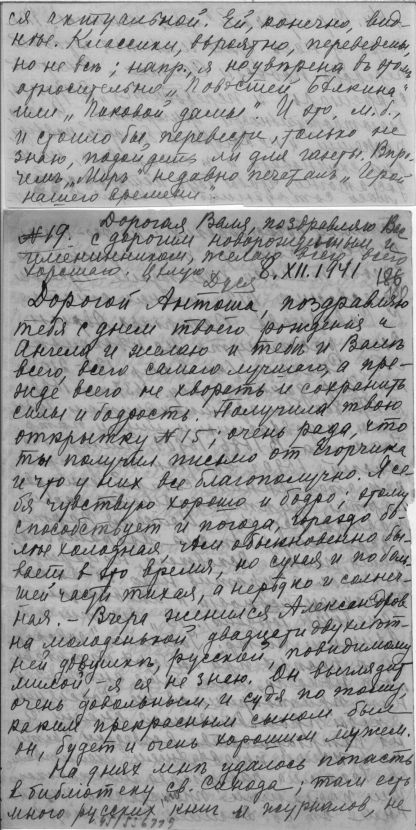 ся актуальной. Ей, конечно, вид-
нѣе. Классики, вѣроятно, переведены,
но не всѣ; напр., я неувѣрена въ этом
относительно „Повѣстей Бѣлкина"
или „Пиковой дамы". И это, м. б.,
и стоило бы перевести, только не
знаю, подойдетъ ли для газеты. Впро-
чемъ, „Миръ" недавно печаталъ „Герой
нашего времени".
№19. Дорогая Валя, поздравляю Вас
с дорогим новорожденным и
именинником, желаю всего, всего
хорошаго. Целую Дуся
8.XII.1941
Дорогой Антоша, поздравляю
тебя с днем твоего рождения и
Ангела и желаю и тебѣ и Валѣ
всего, всего самаго лучшаго, а пре-
жде всего не хворать и сохранить
силы и бодрость. Получила твою
открытку №15; очень рада, что
ты получил письмо от Егорчика
и что у них все благополучно. Я се-
бя чувствую хорошо и бодро; этому
способствует и погода, гораздо бо-
лѣе холодная чѣм обыкновенно бы-
вает в это время, но сухая и по боль-
шей части тихая, а нерѣдко и солнеч-
ная. – Вчера женился Александров
на молоденькой двадцатидвухлѣт-
ней дѣвушкѣ, русской, повидимому
милой, – я ея не знаю. Он выглядит
очень довольным, и судя по тому,
каким прекрасным сыном был
он, будет и очень хорошим мужем.
На днях мнѣ удалось попасть
в библиотеку св. Синода; там есть
много русских книг и журналов, не